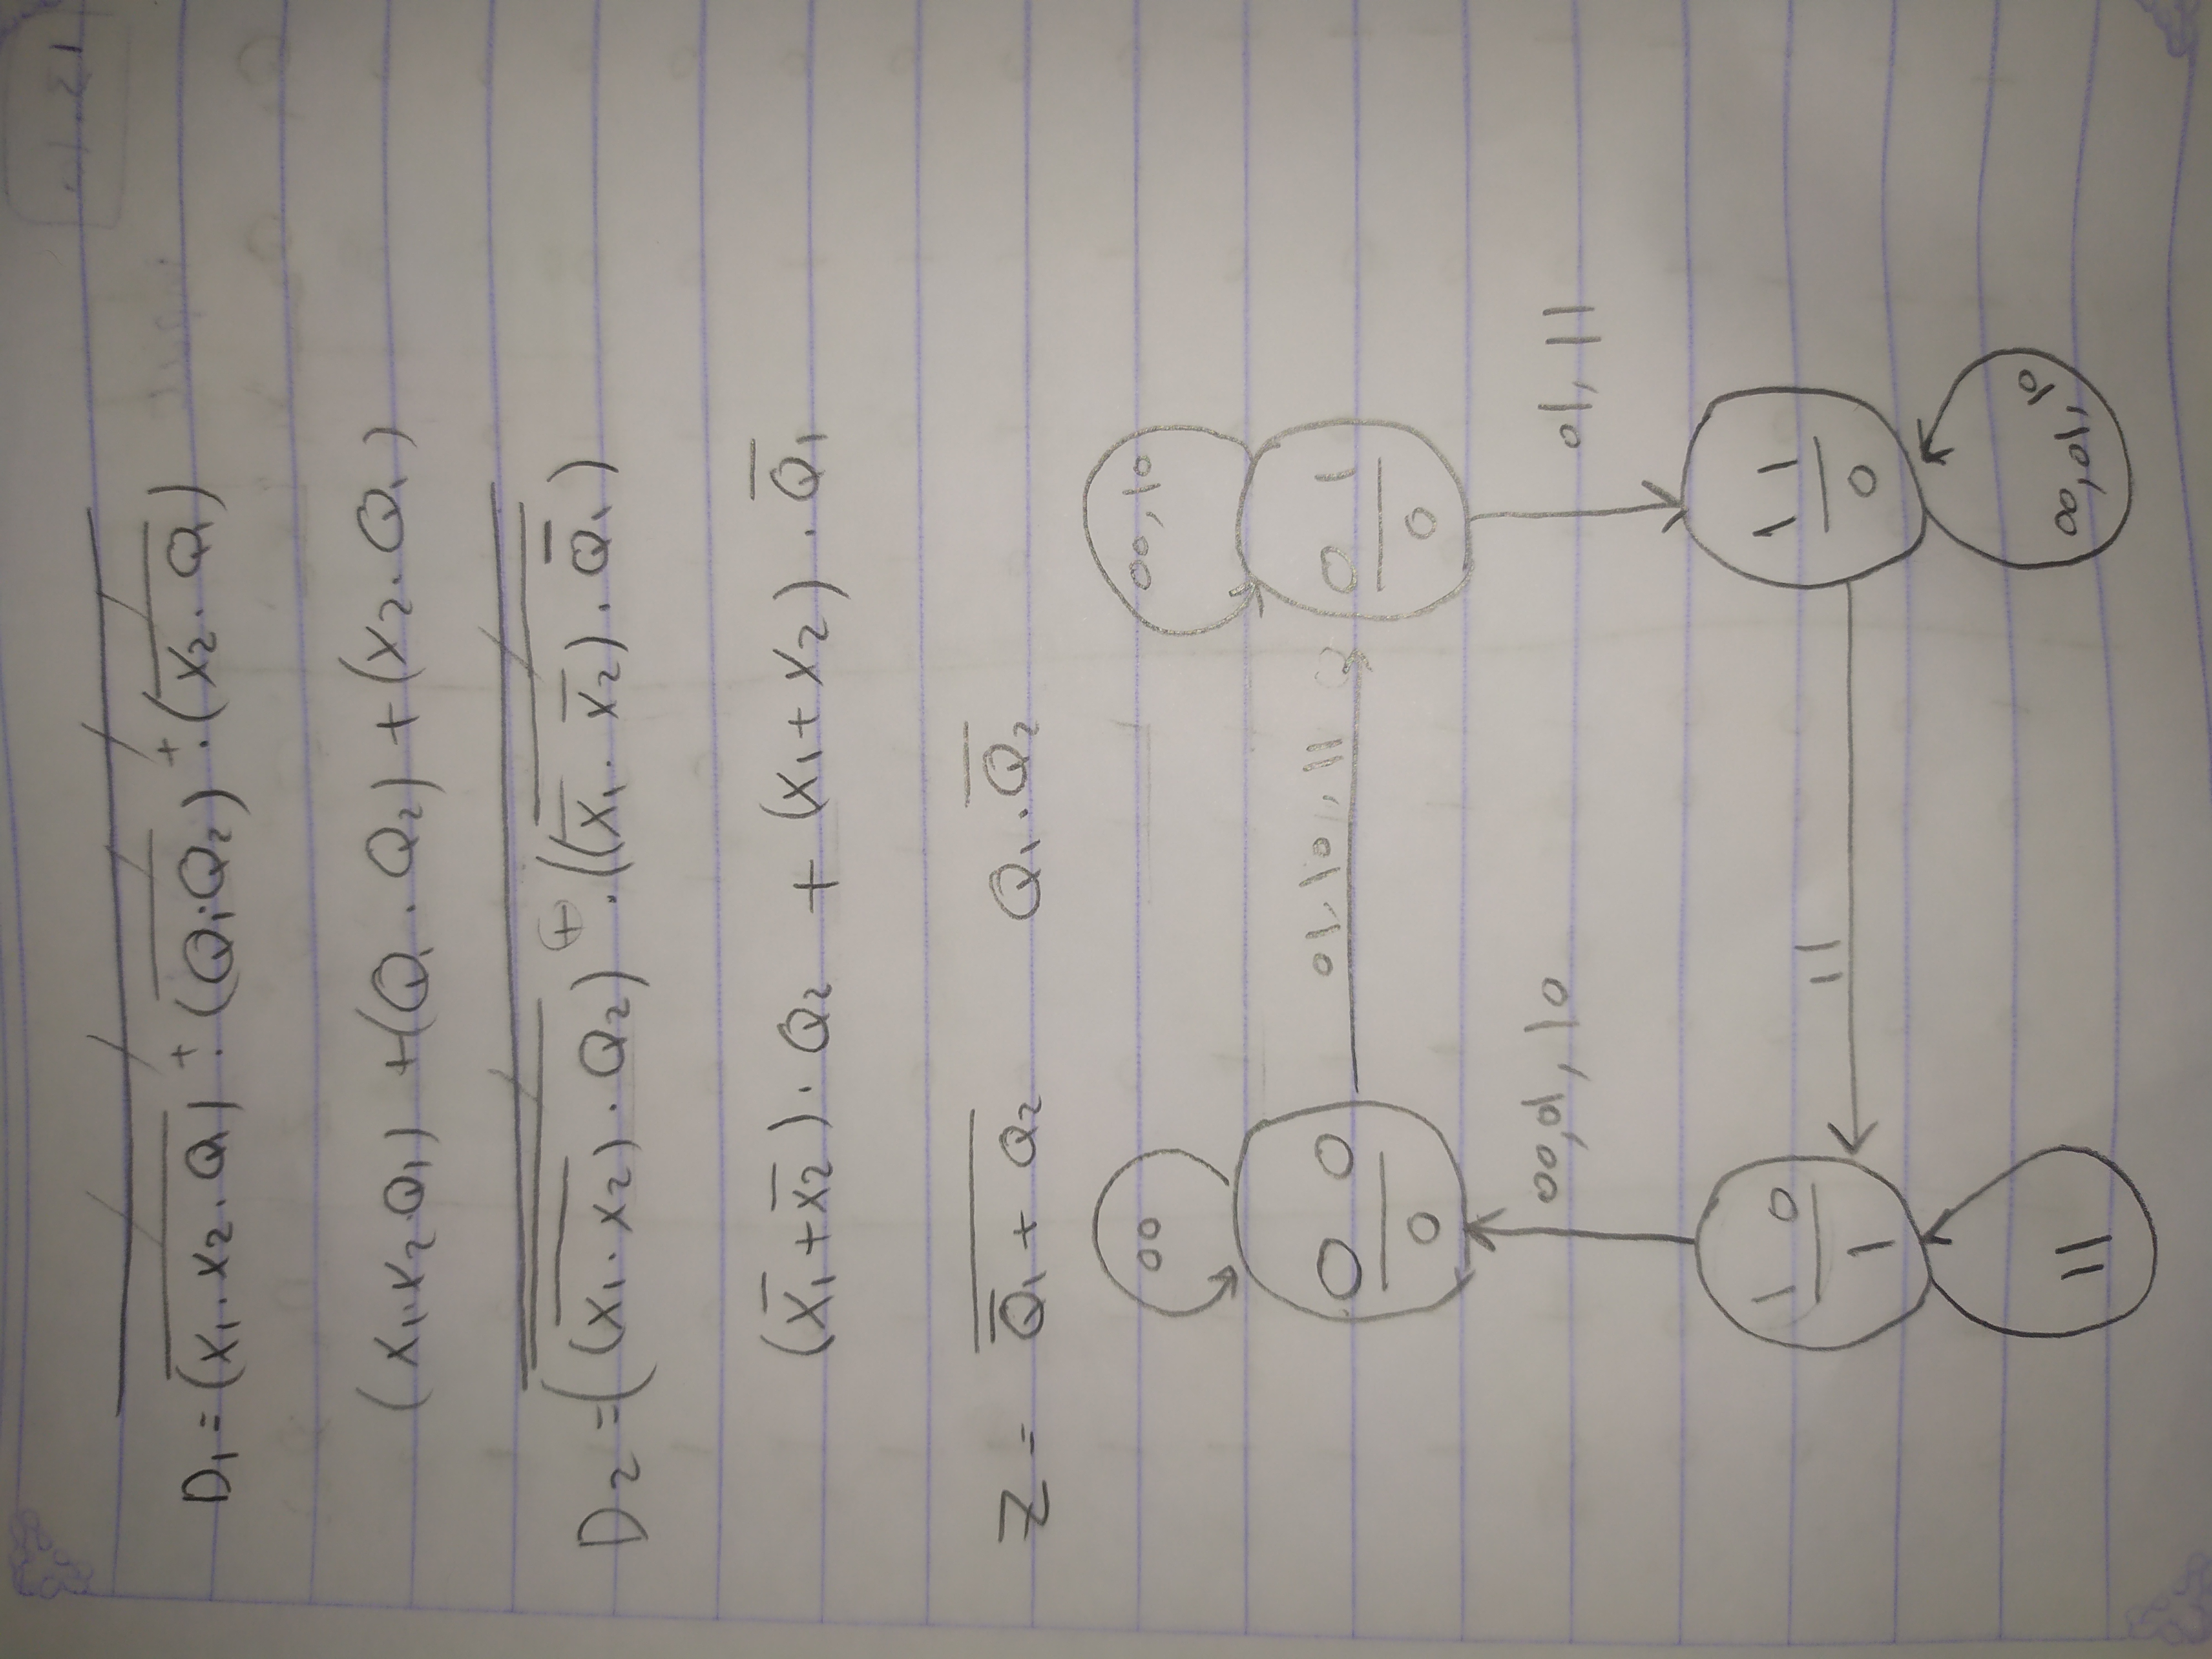 13.10
D₁ = (X₁.X₂.Q₁) ⁺. (Q₁.Q₂) ⁺. (X₂.Q₁)
(X₁.X₂.Q₁) + (Q₁.Q₂) + (X₂.Q₁)
D₂ = ((X₁.X₂).Q₂) ⊕ . ((X̅₁.X̅₂).Q̅₁)
(X̅₁+X̅₂).Q₂ + (X₁+X₂).Q̅₁
Z = Q̅₁ + Q₂ Q₁.Q̅₂
00 00,10
0 0 01,10,11 0 1
0 0
00,01,10 01,11
1 0 11 1 1
1 0
11 00,01,10